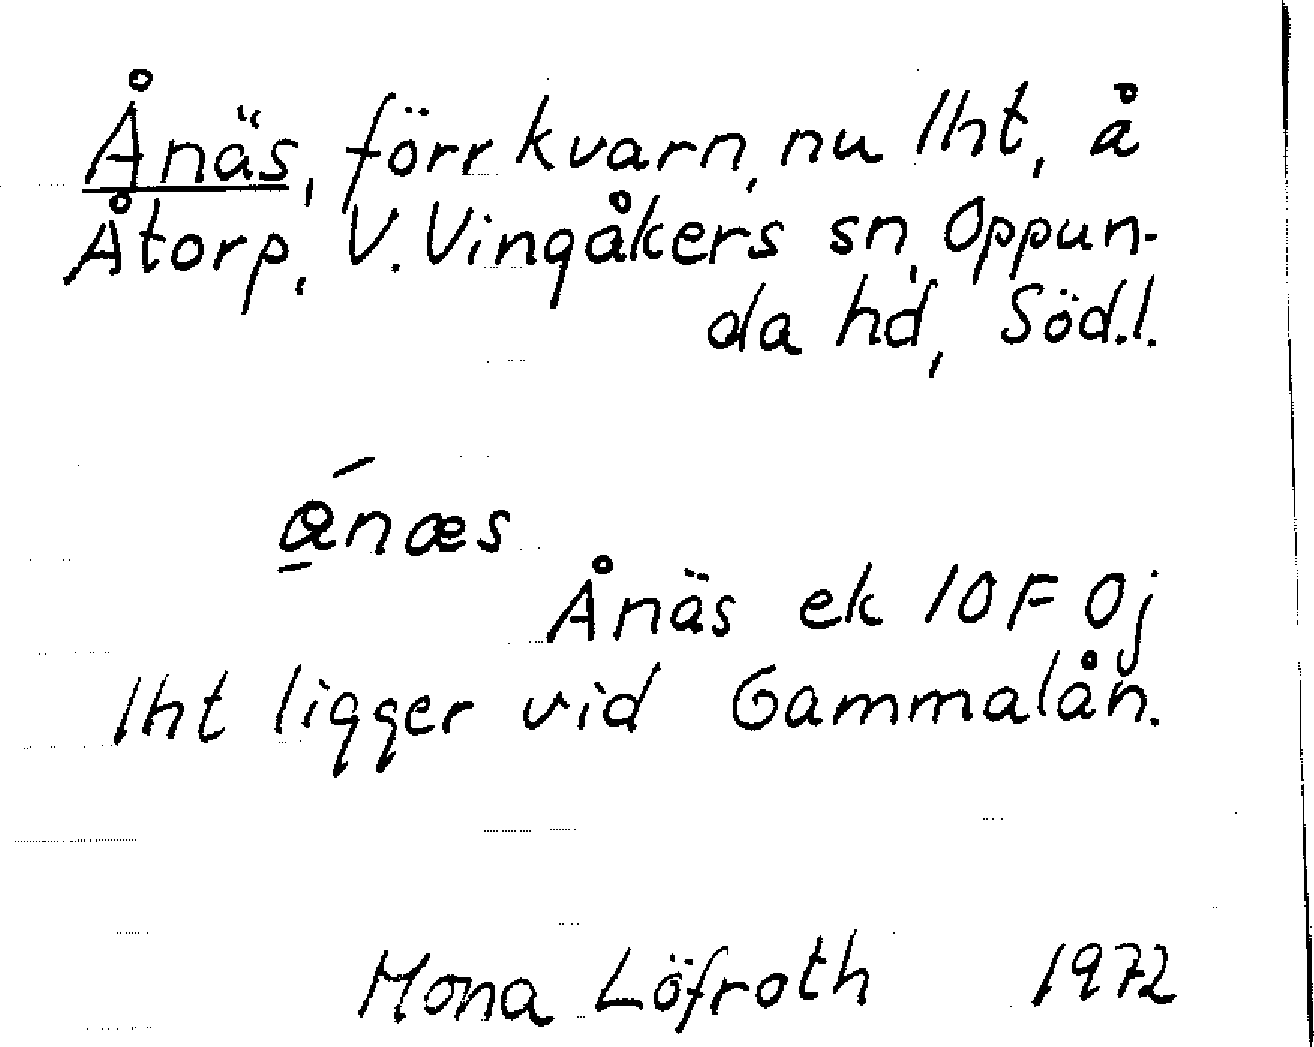 Ånäs, förr kvarn, nu lht, å
Åtorp, V. Vingåkers sn, Oppun-
da hd, Söd.l.
Ånäs ek 10F 0j
lht ligger vid Gammalån.
Mona Löfroth 1972